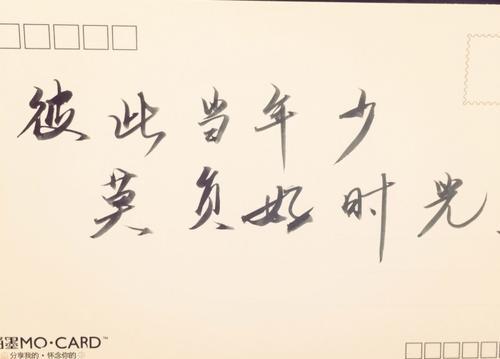 彼此当年少
莫负好时光
MO·CARD™
分享我的·怀念你的